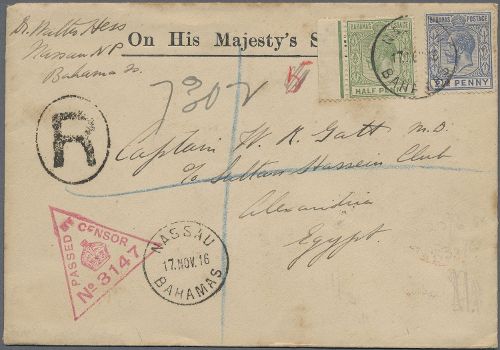 Dr. Walter Hess
Nassau N.P.
Bahama Is.
On His Majesty's S
BAHAMAS POSTAGE
HALF PENNY
BAHAMAS POSTAGE
PENNY
NASSAU
17 NOV 16
BAHAMAS
302
R
Captain W. R. Gatt M.D.
c/o Sultan Hussein Club
Alexandria
Egypt.
PASSED BY CENSOR
No 3147
NASSAU
17.NOV.16
BAHAMAS